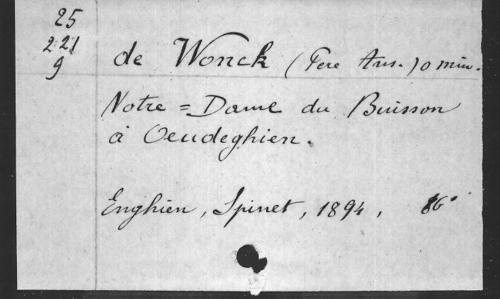 25
2.21
9
de Wonck (Père Ans.) o min.
Notre=Dame du Buisson
à Oeudeghien.
Enghien, Spinet, 1894, 16°